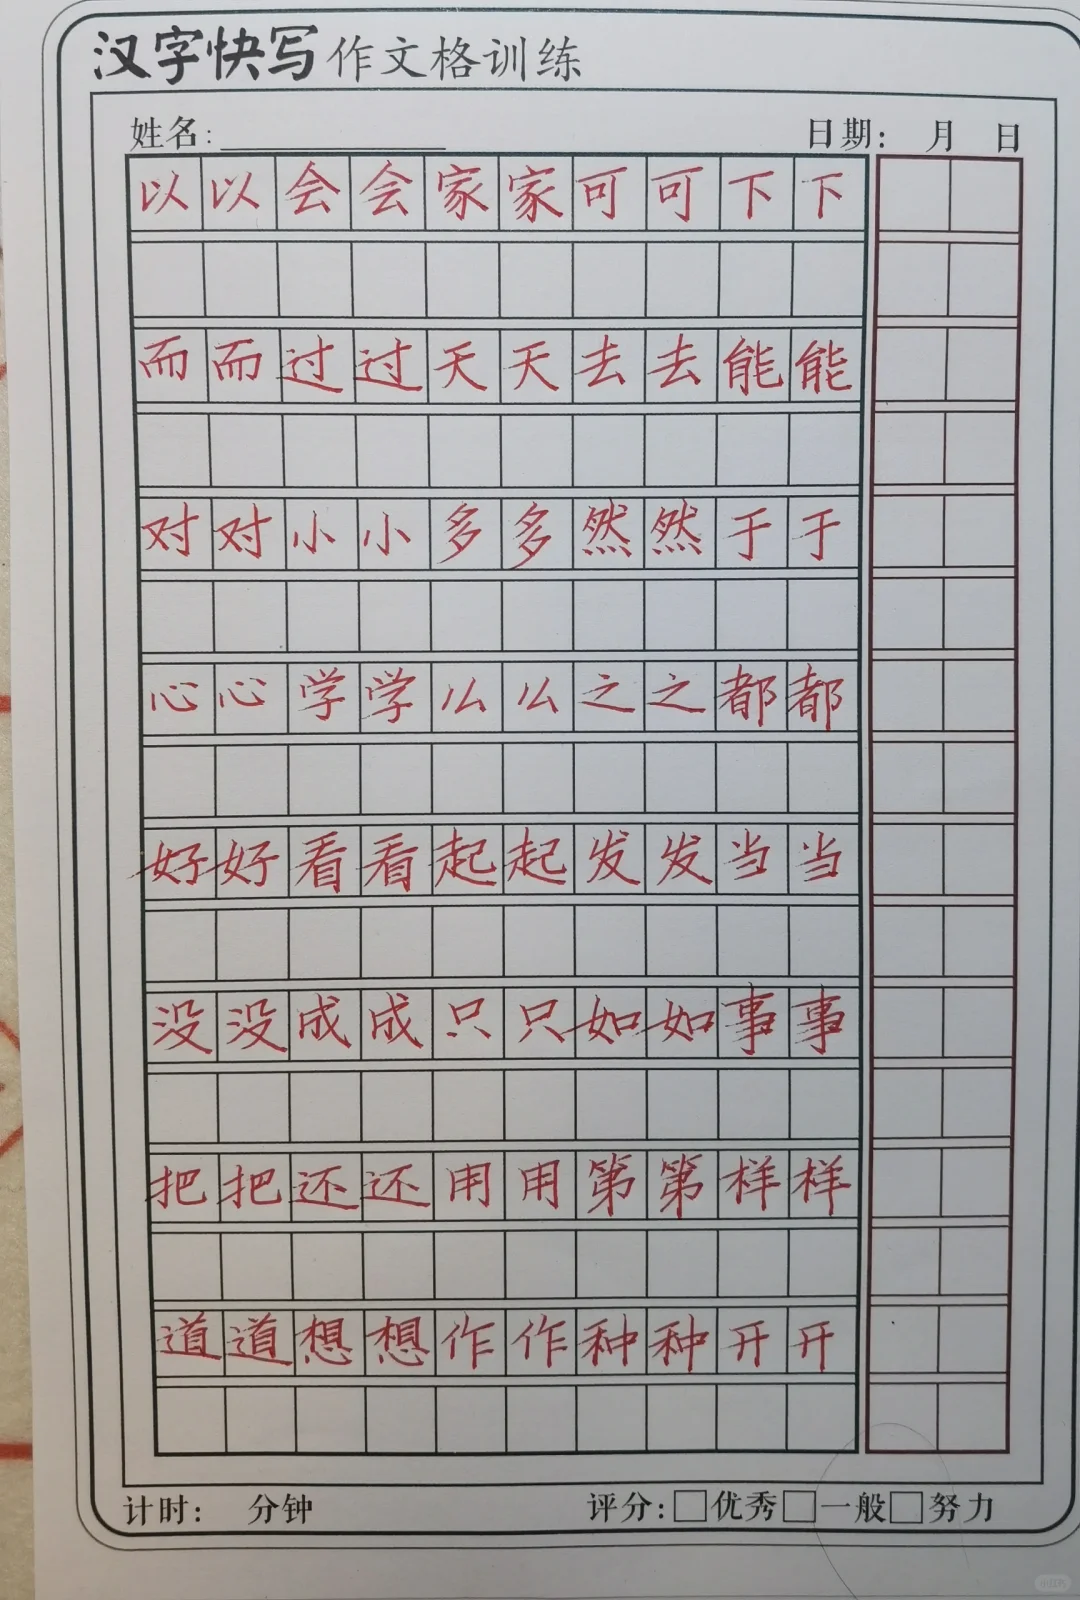 汉字快写作文格训练
姓名: 日期: 月 日
以以会会家家可可下下
而而过过天天去去能能
对对小小多多然然于于
心心学学么么之之都都
好好看看起起发发当当
没没成成只只如如事事
把把还还用用第第样样
道道想想作作种种开开
计时: 分钟 评分:□优秀□一般□努力
小红书